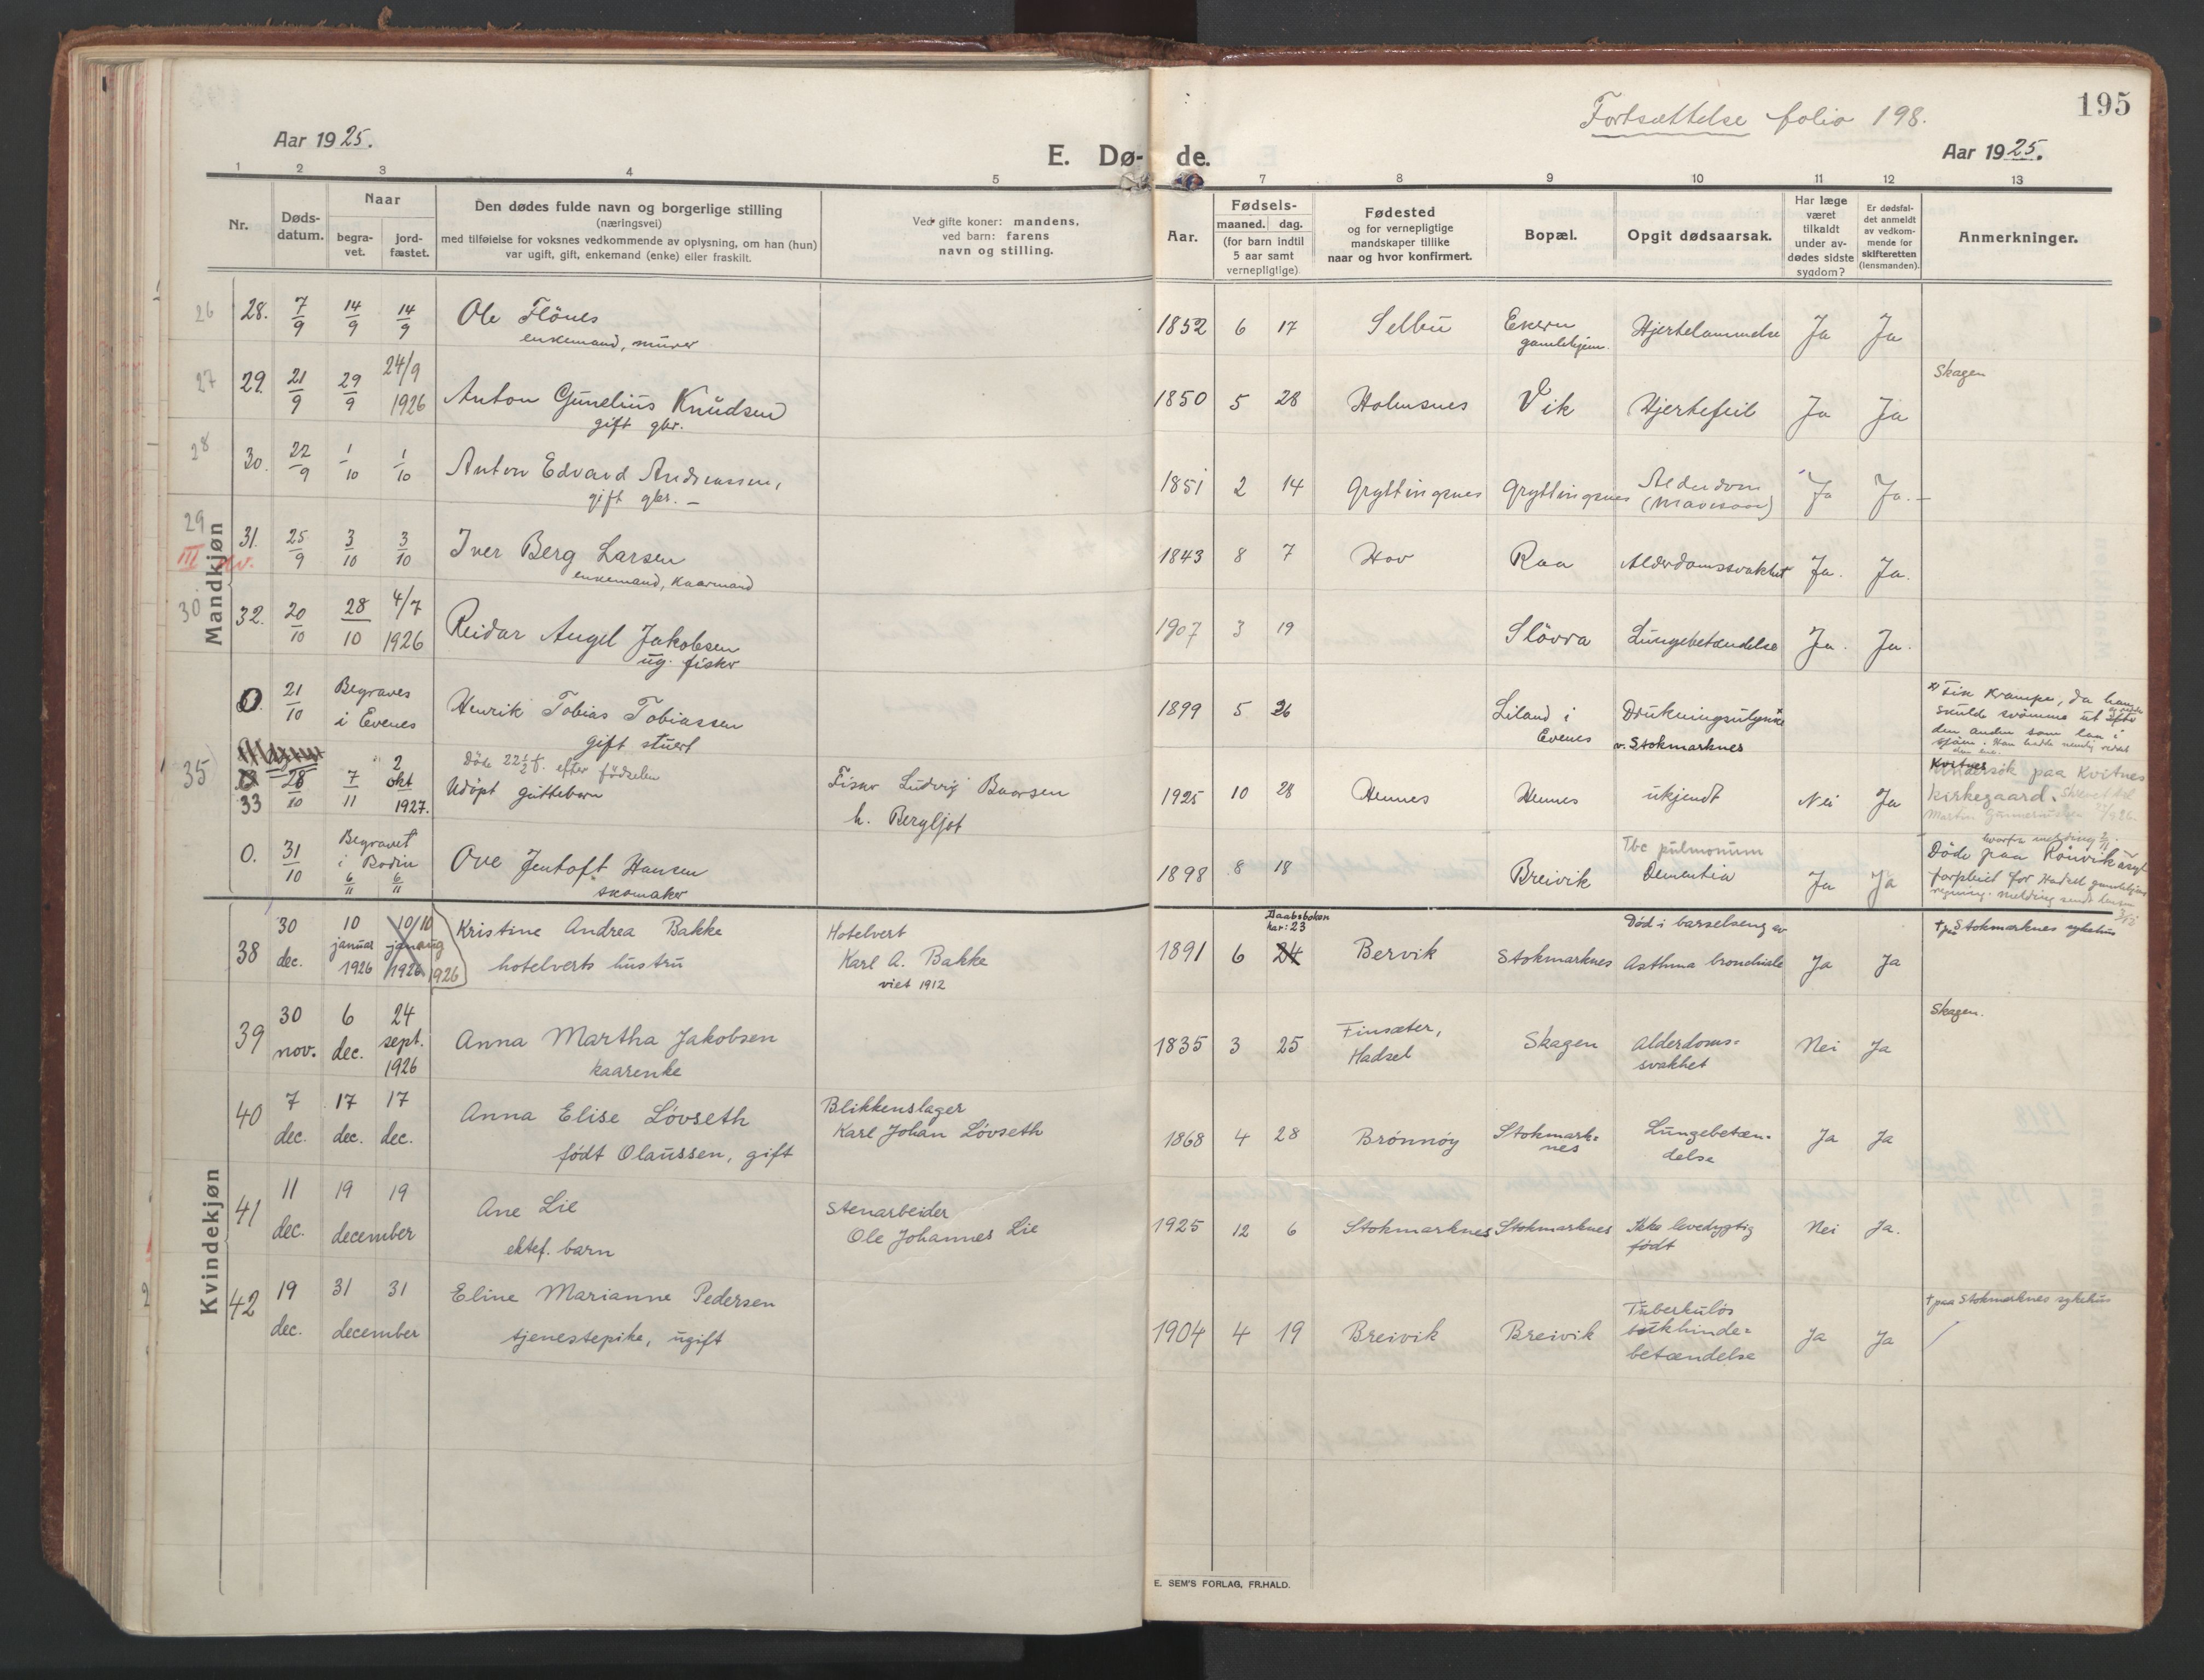 Fortsættelse folio 198.
195
Aar 1925.
E. Dø- de.
Aar 1925.
1 2 3 4 5 7 8 9 10 11 12 13
Nr.
Døds-
datum.
Naar
begra-
vet.
jord-
fæstet.
Den dødes fulde navn og borgerlige stilling
(næringsvei)
med tilføielse for voksnes vedkommende av oplysning, om han (hun)
var ugift, gift, enkemand (enke) eller fraskilt.
Ved gifte koner: mandens,
ved barn: farens
navn og stilling.
Aar.
Fødsels-
maaned. dag.
(for barn indtil
5 aar samt
vernepligtige)
Fødested
og for vernepligtige
mandskaper tillike
naar og hvor konfirmert.
Bopæl.
Opgit dødsaarsak.
Har læge
været
tilkaldt
under av-
dødes sidste
sygdom?
Er dødsfal-
det anmeldt
av vedkom-
mende for
skifteretten
(lensmanden).
Anmerkninger.
Mandkjøn
26 28. 7/9 14/9 14/9 Ole Flönes
enkemand, murer
1852 6 17 Selbu Ekren
gamlehjem.
Hjertelammelse Ja Ja
27 29. 21/9 29/9 24/9
1926
Anton Gunelius Knudsen
gift gbr.
1850 5 28 Holmsnes Vik Hjertefeil Ja Ja Skagen
28 30. 22/9 1/10 1/10 Anton Edvard Andreassen,
gift gbr. –
1851 2 14 Gryttingsnes Gryttingsnes Alderdom
Ja Ja. –
29 31. 25/9 3/10 3/10 Iver Berg Larsen
enkemand, Kaarmand
III kv.
1843 8 7 Hov Raa Alderdomssvakhet Ja. Ja.
30 32. 20/10 28/10 4/7
1926
Reidar Angel Jakobsen
ug. fisker
1907 3 19 Slövra Lungebetændelse Ja. Ja.
0. 21/10 Begraves
i Evenes
Henrik Tobias Tobiassen
gift stuert
1899 5 26 Liland i
Evenes
Drukningsulykke x
v. Stokmarknes
x) Fik Krampe, da han
skulde svömme ut efter
den anden som laa i
sjöen. Han hadde nemlig reddet
den ene.
35 33 28/10 7/11 2
okt
1927.
Döde 22½ t. efter födselen
Udöpt guttebarn
Fisker Ludvig Baarsen
h. Bergljot
1925 10 28 Hennes Hennes ukjendt Nei Ja
Kvitnes
Undersök paa Kvitnes
kirkegaard.
0. 31/10 Begravet
i Bodin
6/11 6/11
Ove Jentoft Hansen
skomaker
1898 8 18 Breivik Tbc pulmonum
Dementia
Ja Ja
Döde paa Rönvik asyl
forpleiet for Hadsel gamlehjems
regning. Melding sendt
Kvindekjøn
38 30
dec.
10
januar
1926
10/10
januar
1926
aug
1926
Kristine Andrea Bakke
hotelverts hustru
Hotelvert
Karl A. Bakke
viet 1912
1891 6 24
Daabsboken
har: 23
Bervik Stokmarknes Død i barselseng av
Asthma bronchiale
Ja Ja
† paa Stokmarknes sykehus
39 30
nov.
6
dec.
24
sept.
1926
Anna Martha Jakobsen
kaarenke
1835 3 25 Finsæter,
Hadsel
Skagen Alderdoms-
svakhet
Nei Ja Skagen.
40 7
dec.
17
dec.
17
dec.
Anna Elise Løvseth
født Olaussen, gift
Blikkenslager
Karl Johan Løvseth
1868 4 28 Brønnøy Stokmark-
nes
Lungebetæn-
delse
Ja Ja
41 11
dec.
19 19
december
Ane Lie
ektef. barn
Stenarbeider
Ole Johannes Lie
1925 12 6 Stokmarknes Stokmarknes Ikke levedygtig
født
Nei Ja.
42 19
dec.
31 31
december
Eline Marianne Pedersen
tjenestepike, ugift
1904 4 19 Breivik Breivik Tuberkuløs
bukhinde-
betændelse
Ja Ja
† paa Stokmarknes sykehus
E. SEM'S FORLAG, FR.HALD.